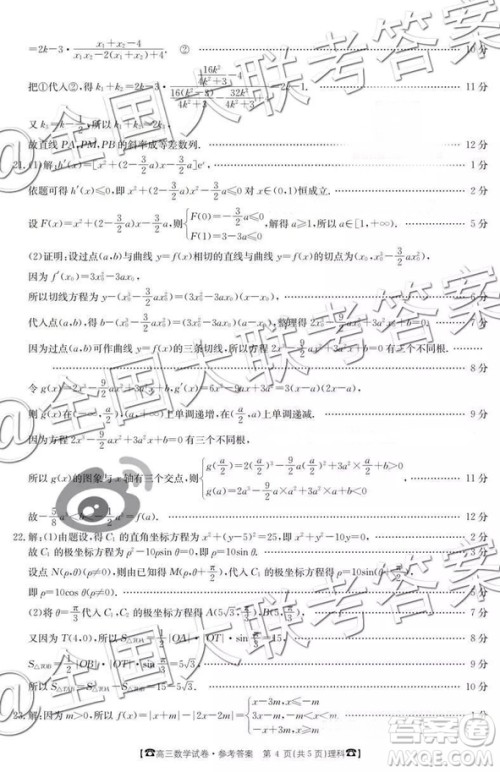 =2k-3·(x₁+x₂-4)/(x₁x₂-2(x₁+x₂)+4), ② 10分
把①代入②,得k₁+k₂=2k-3· =2k-1. 11分
又k₃=k-1/2,所以k₁+k₂=2k₃,
故直线PA,PM,PB的斜率成等差数列. 12分
21.(1)解:h′(x)=[x²+(2-3/2a)x-3/2a]eˣ, 1分
依题可得h′(x)≤0,即x²+(2-3/2a)x-3/2a≤0对x∈[0,1]恒成立. 2分
设F(x)=x²+(2-3/2a)x-3/2a,则{F(0)=-3/2a≤0 F(1)=3-3a≤0,解得a≥1,所以a∈[1,+∞). 5分
(2)证明:设过点(a,b)与曲线y=f(x)相切的直线与曲线y=f(x)的切点为(x₀,x₀³-3/2ax₀²),
因为f′(x₀)=3x₀²-3ax₀,
所以切线方程为y-(x₀³-3/2ax₀²)=(3x₀²-3ax₀)(x-x₀), 6分
代入点(a,b),得b-(x₀³-3/2ax₀²)=(3x₀²-3ax₀)(a-x₀),整理得2x₀³-9/2ax₀²+3a²x₀+b=0. 7分
因为过点(a,b)可作曲线y=f(x)的三条切线,所以方程2x³-9/2ax²+3a²x+b=0有三个不同根.
8分
令g(x)=2x³-9/2ax²+3a²x+b,g′(x)=6x²-9ax+3a²=3(x-a)(2x-a),
上单调递增,在(a/2,a)上单调递减.
因为方程2x³-9/2ax²+3a²x+b=0有三个不同根,
所以g(x)的图象与x轴有三个交点,则 11分
故-5/8a³<b< 12分
22.解:(1)由题设,得C₁的直角坐标方程为x²+(y-5)²=25,即x²+y²-10y=0, 2分
故C₁的极坐标方程为ρ²-10ρsinθ=0,即ρ=10sinθ. 3分
设点N(ρ,θ)(ρ≠0),则由已知得M(ρ,θ+π/2),代入C₁的极坐标方程得ρ=10sin(θ+π/2),
即ρ=10cosθ(ρ≠0). 5分
(2)将θ=π/3代入C₁,C₂的极坐标方程得A(5√3,π/3),B(5,π/3), 7分
又因为T(4,0),所以S△TOA=1/2|OA|·|OT|·sinπ/3=15, 8分
S△TOB=1/2|OB|·|OT|·sinπ/3=5√3, 9分
所以S△TAB=S△TOA-S△TOB=15-5√3. 10分
23.解:因为m>0,所以f(x)=|x+m|-|2x-2m|=
☎高三数学试卷·参考答案 第4页(共5页)理科☎
@全国大联考答案